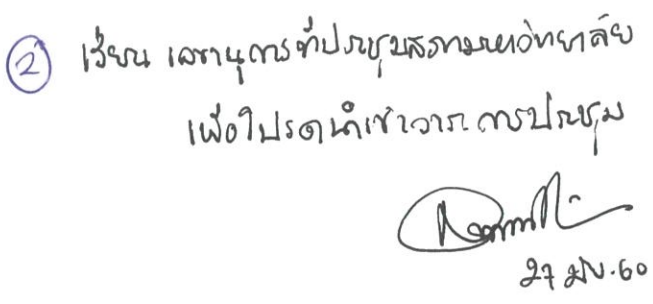 ② เรียน เลขานุการที่ประชุมสภามหาวิทยาลัย
เพื่อโปรดนำเข้าวาระการประชุม
27 มิย. 60